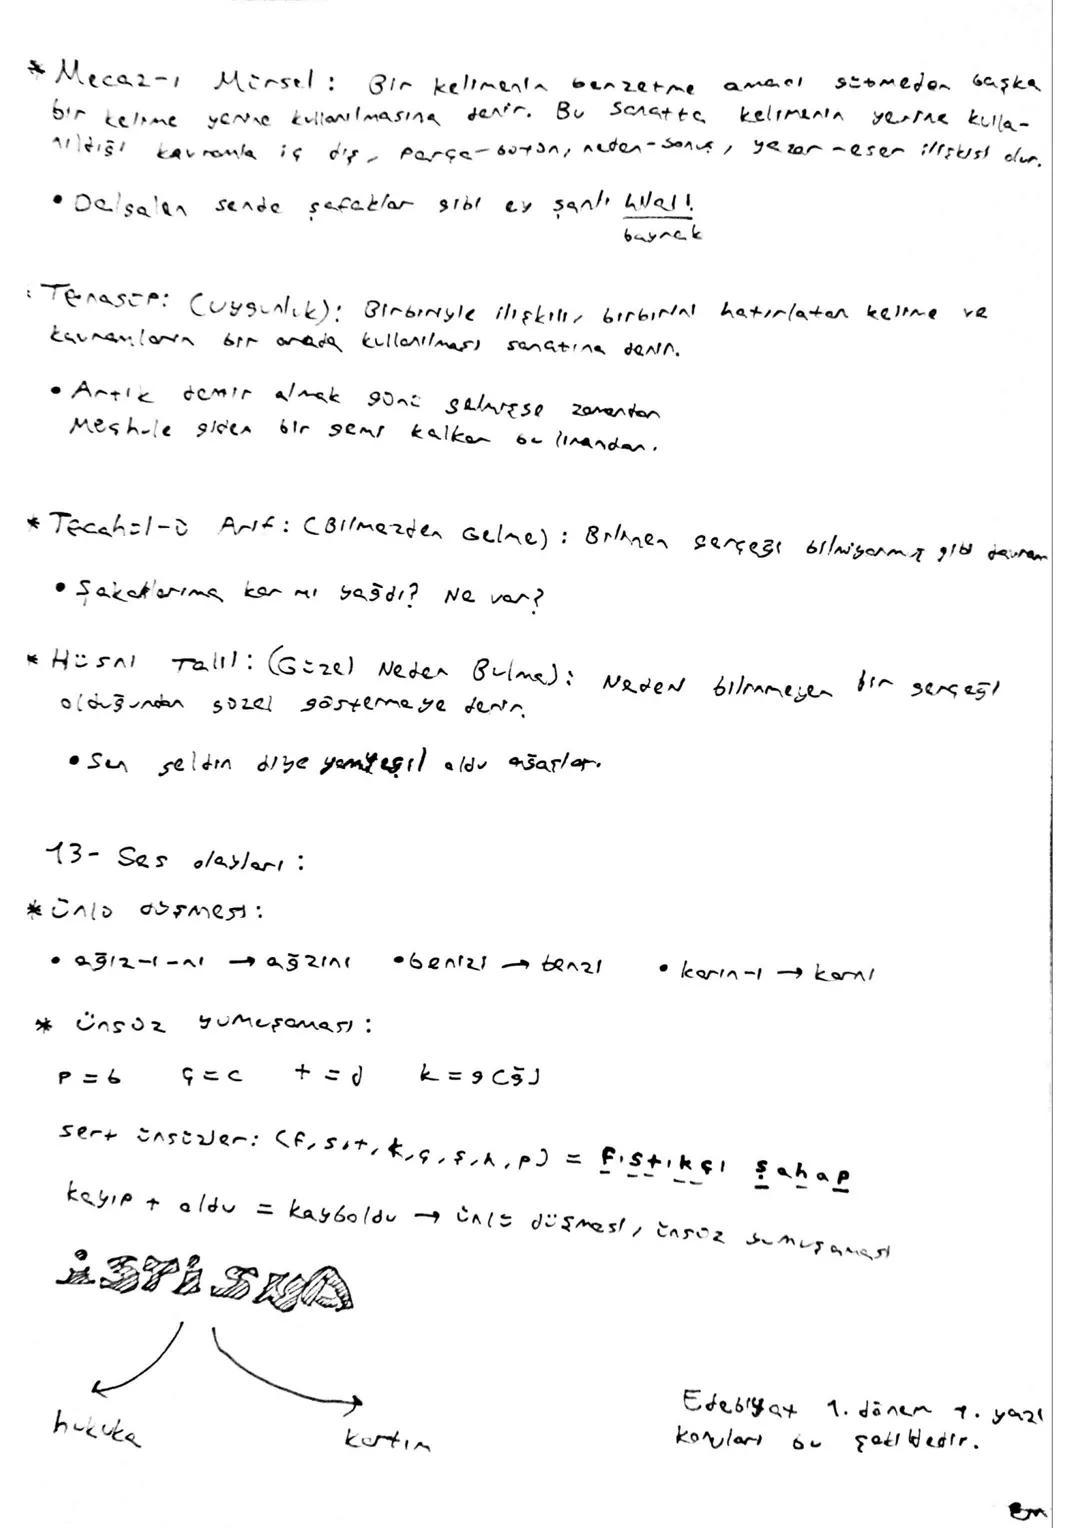 * Mecaz-ı Mürsel: Bir kelimenin benzetme amacı gütmeden başka
bir kelime yerine kullanılmasına denir. Bu sanatta kelimenin yerine kulla-
nıldığı kavramla iç dış, parça-bütün, neden-sonuç, yazar-eser ilişkisi olur.
• Dalgalan sende şafaklar gibi ey şanlı hilal!
bayrak
: Tenasüp: (Uygunluk): Birbiriyle ilişkili, birbirini hatırlatan kelime ve
kavramların bir arada kullanılması sanatına denir.
• Artık demir almak günü gelmişse zamandan
Meçhule giden bir gemi kalkar bu limandan.
* Tecahül-ü Arif: (Bilmezden Gelme): Bilinen gerçeği bilmiyormuş gibi davran
• Şakaklarıma kar mı yağdı? Ne var?
* Hüsni Talil: (Güzel Neden Bulma): Neden bilinmeyen bir gerçeği
olduğundan güzel göstermeye denir.
• Sen geldin diye yemyeşil oldu ağaçlar.
13- Ses olayları:
* Ünlü düşmesi:
• ağız-ı-nı → ağzını •benizi → benzi • karın-ı → karnı
* Ünsüz yumuşaması:
p = b ç = c t = d k = g (ğ)
sert ünsüzler: (f, s, t, k, ç, ş, h, p) = Fıstıkçı Şahap
kayıp + oldu = kayboldu → ünlü düşmesi, ünsüz yumuşaması
İSTİSNA
hukuka kartım
Edebiyat 1. dönem 1. yazılı
konuları bu şekildedir.